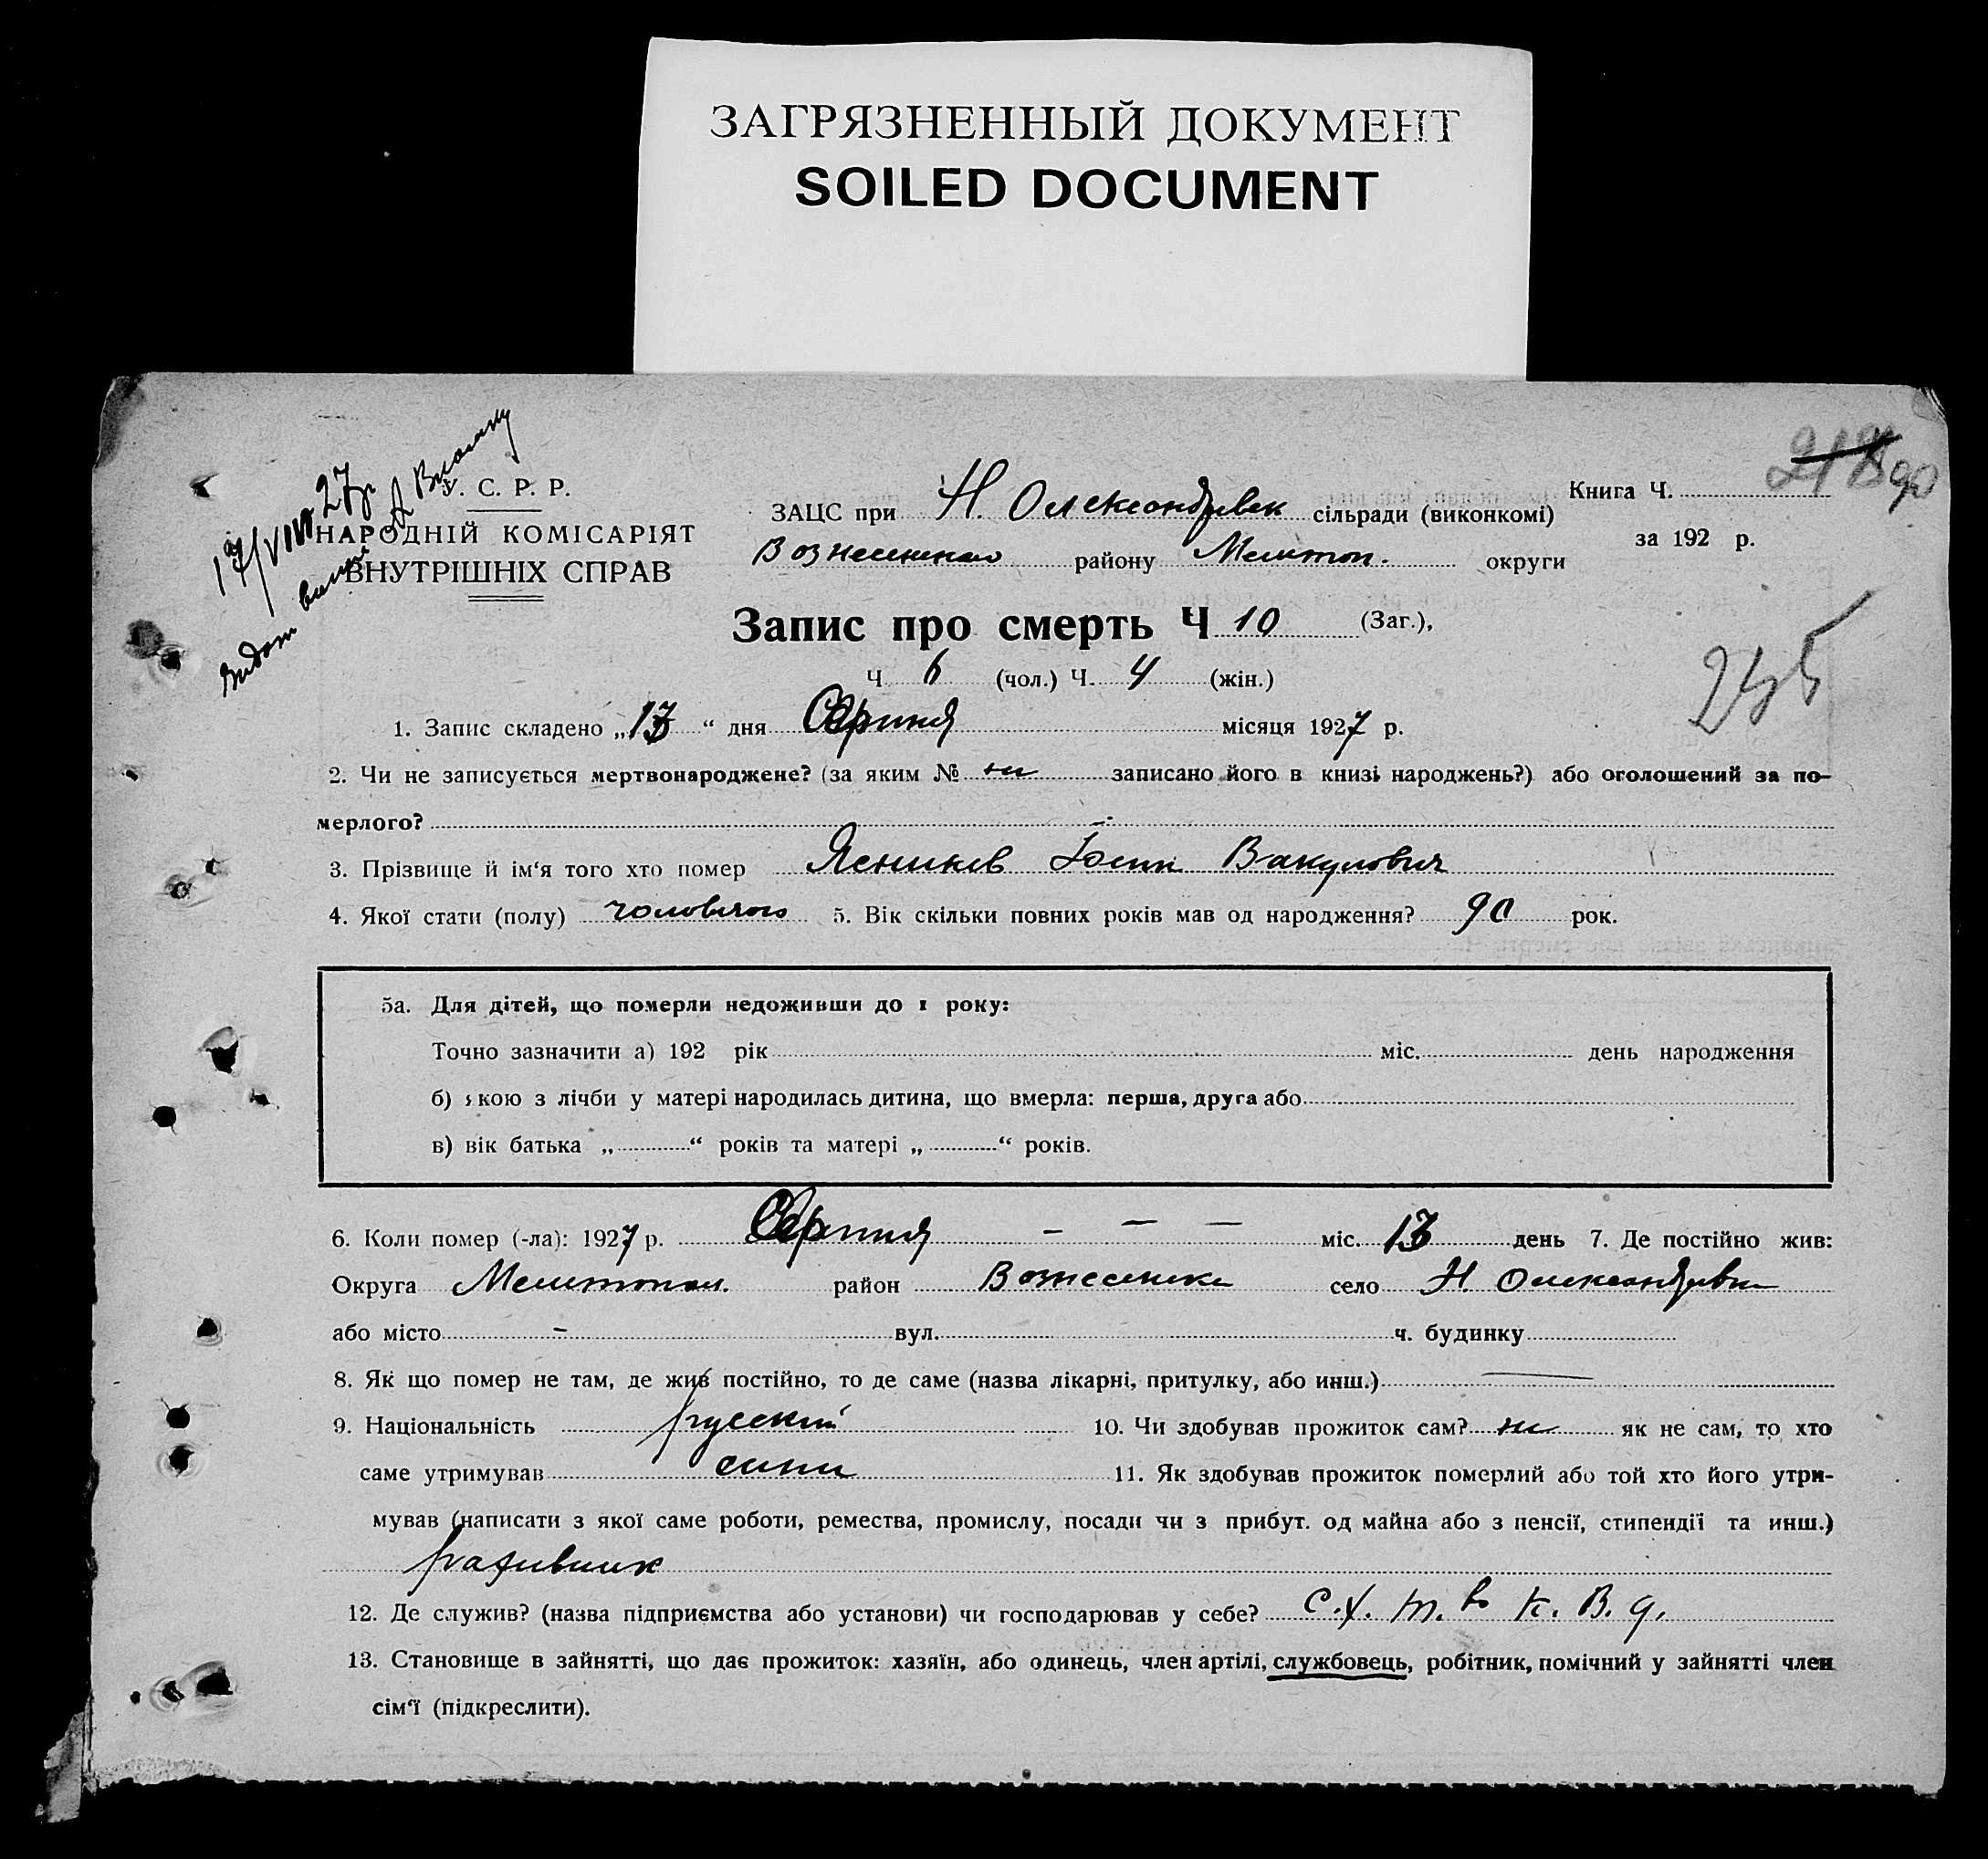 ЗАГРЯЗНЕННЫЙ ДОКУМЕНТ
SOILED DOCUMENT
17/VIII 27р
У. С. Р. Р.
НАРОДНІЙ КОМІСАРІЯТ
ВНУТРІШНІХ СПРАВ
ЗАЦС при Н. Олександрівск сільради (виконкомі)
Вознесенского району Мелитоп. округи
Книга Ч.
за 192 р.
Запис про смерть Ч 10 (Заг.),
Ч 6 (чол.) Ч. 4 (жін.)
245
1. Запис складено „13“ дня Серпня місяця 1927 р.
2. Чи не записується мертвонароджене? (за яким № ні записано його в книзі народжень?) або оголошений за по-
мерлого?
3. Прізвище й ім‘я того хто помер Ясников Іосип Вакулович
4. Якої стати (полу) чоловічого 5. Вік скільки повних років мав од народження? 90 рок.
5а. Для дітей, що померли недоживши до 1 року:
Точно зазначити а) 192 рік міс. день народження
б) якою з лічби у матері народилась дитина, що вмерла: перша, друга або
в) вік батька „ “ років та матері „ “ років.
6. Коли помер (-ла): 1927 р. Серпня — — — міс. 13 день 7. Де постійно жив:
Округа Мелитопол. район Вознесенка село Н. Олександрівка
або місто - вул. ч. будинку
8. Як що помер не там, де жив постійно, то де саме (назва лікарні, притулку, або инш.) —
9. Національність русский 10. Чи здобував прожиток сам? ні як не сам, то хто
саме утримував сини 11. Як здобував прожиток померлий або той хто його утри-
мував (написати з якої саме роботи, ремества, промислу, посади чи з прибут. од майна або з пенсії, стипендії та инш.)
рахивник
12. Де служив? (назва підприємства або установи) чи господарював у себе? С.Х. т. во К. В. д.
13. Становище в зайнятті, що дає прожиток: хазяїн, або одинець, член артілі, службовець, робітник, помічний у зайнятті член
сім‘ї (підкреслити).